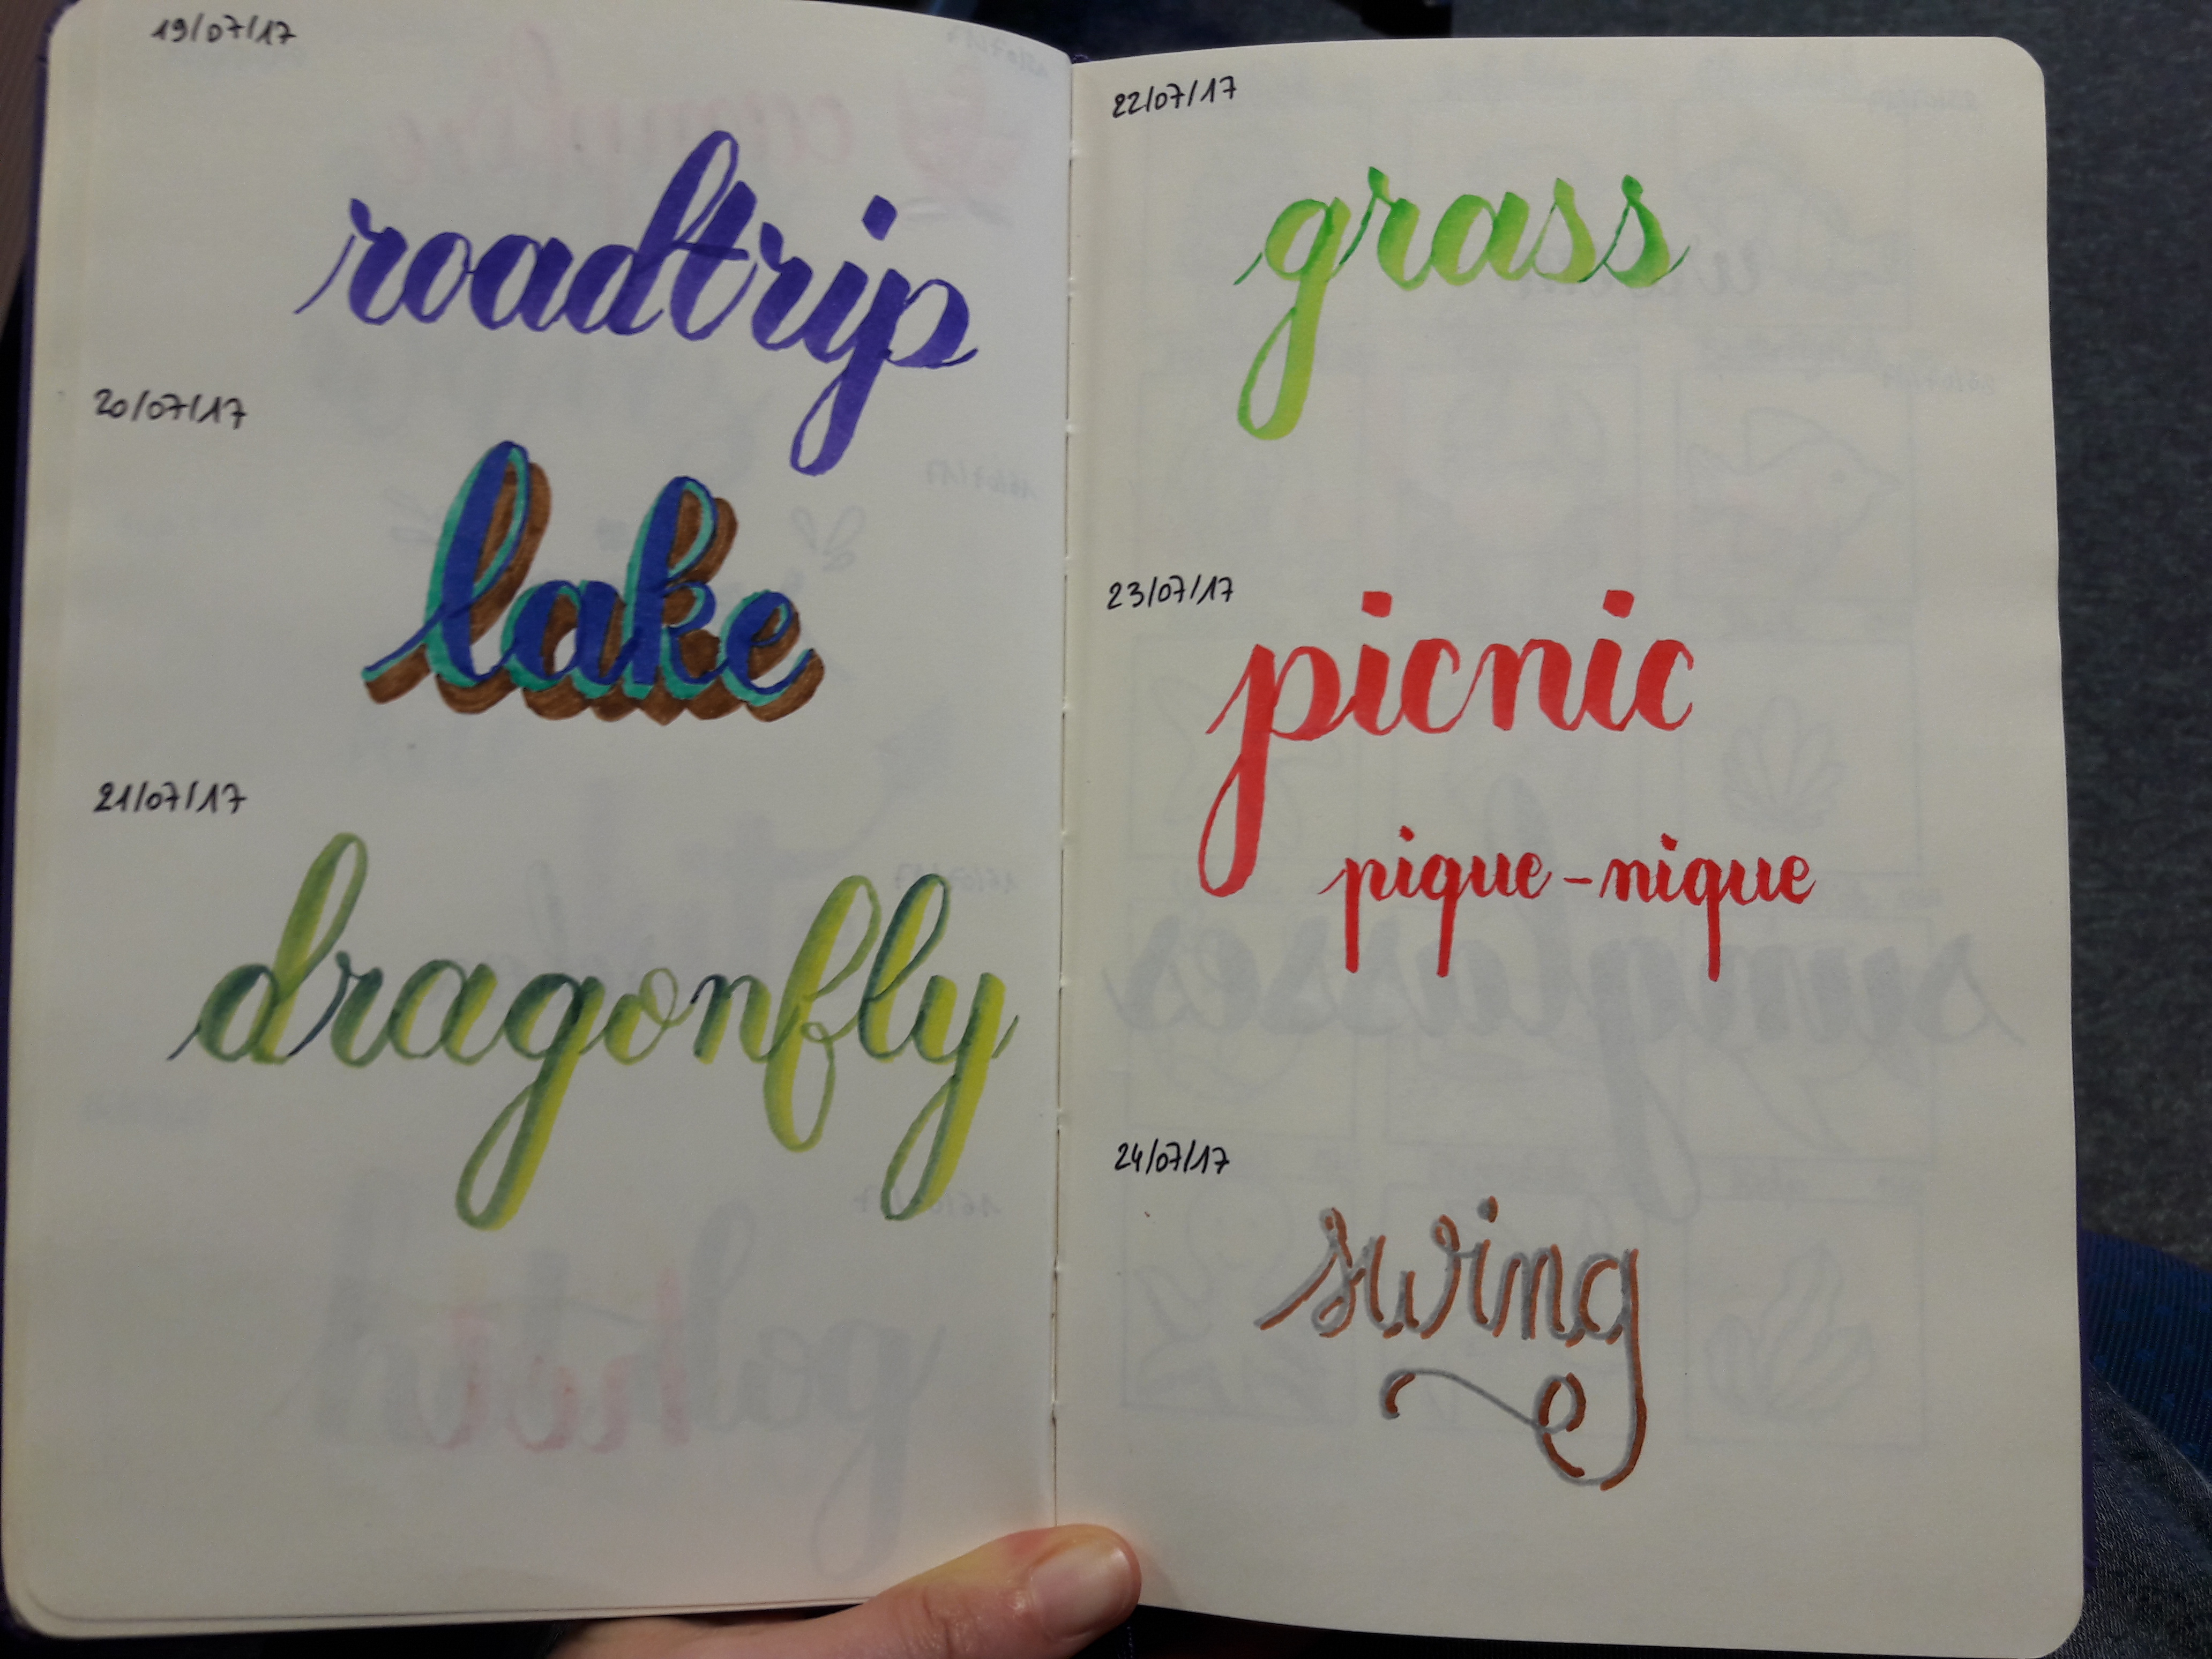 19/07/17
roadtrip
20/07/17
lake
21/07/17
dragonfly
22/07/17
grass
23/07/17
picnic
pique-nique
24/07/17
swing